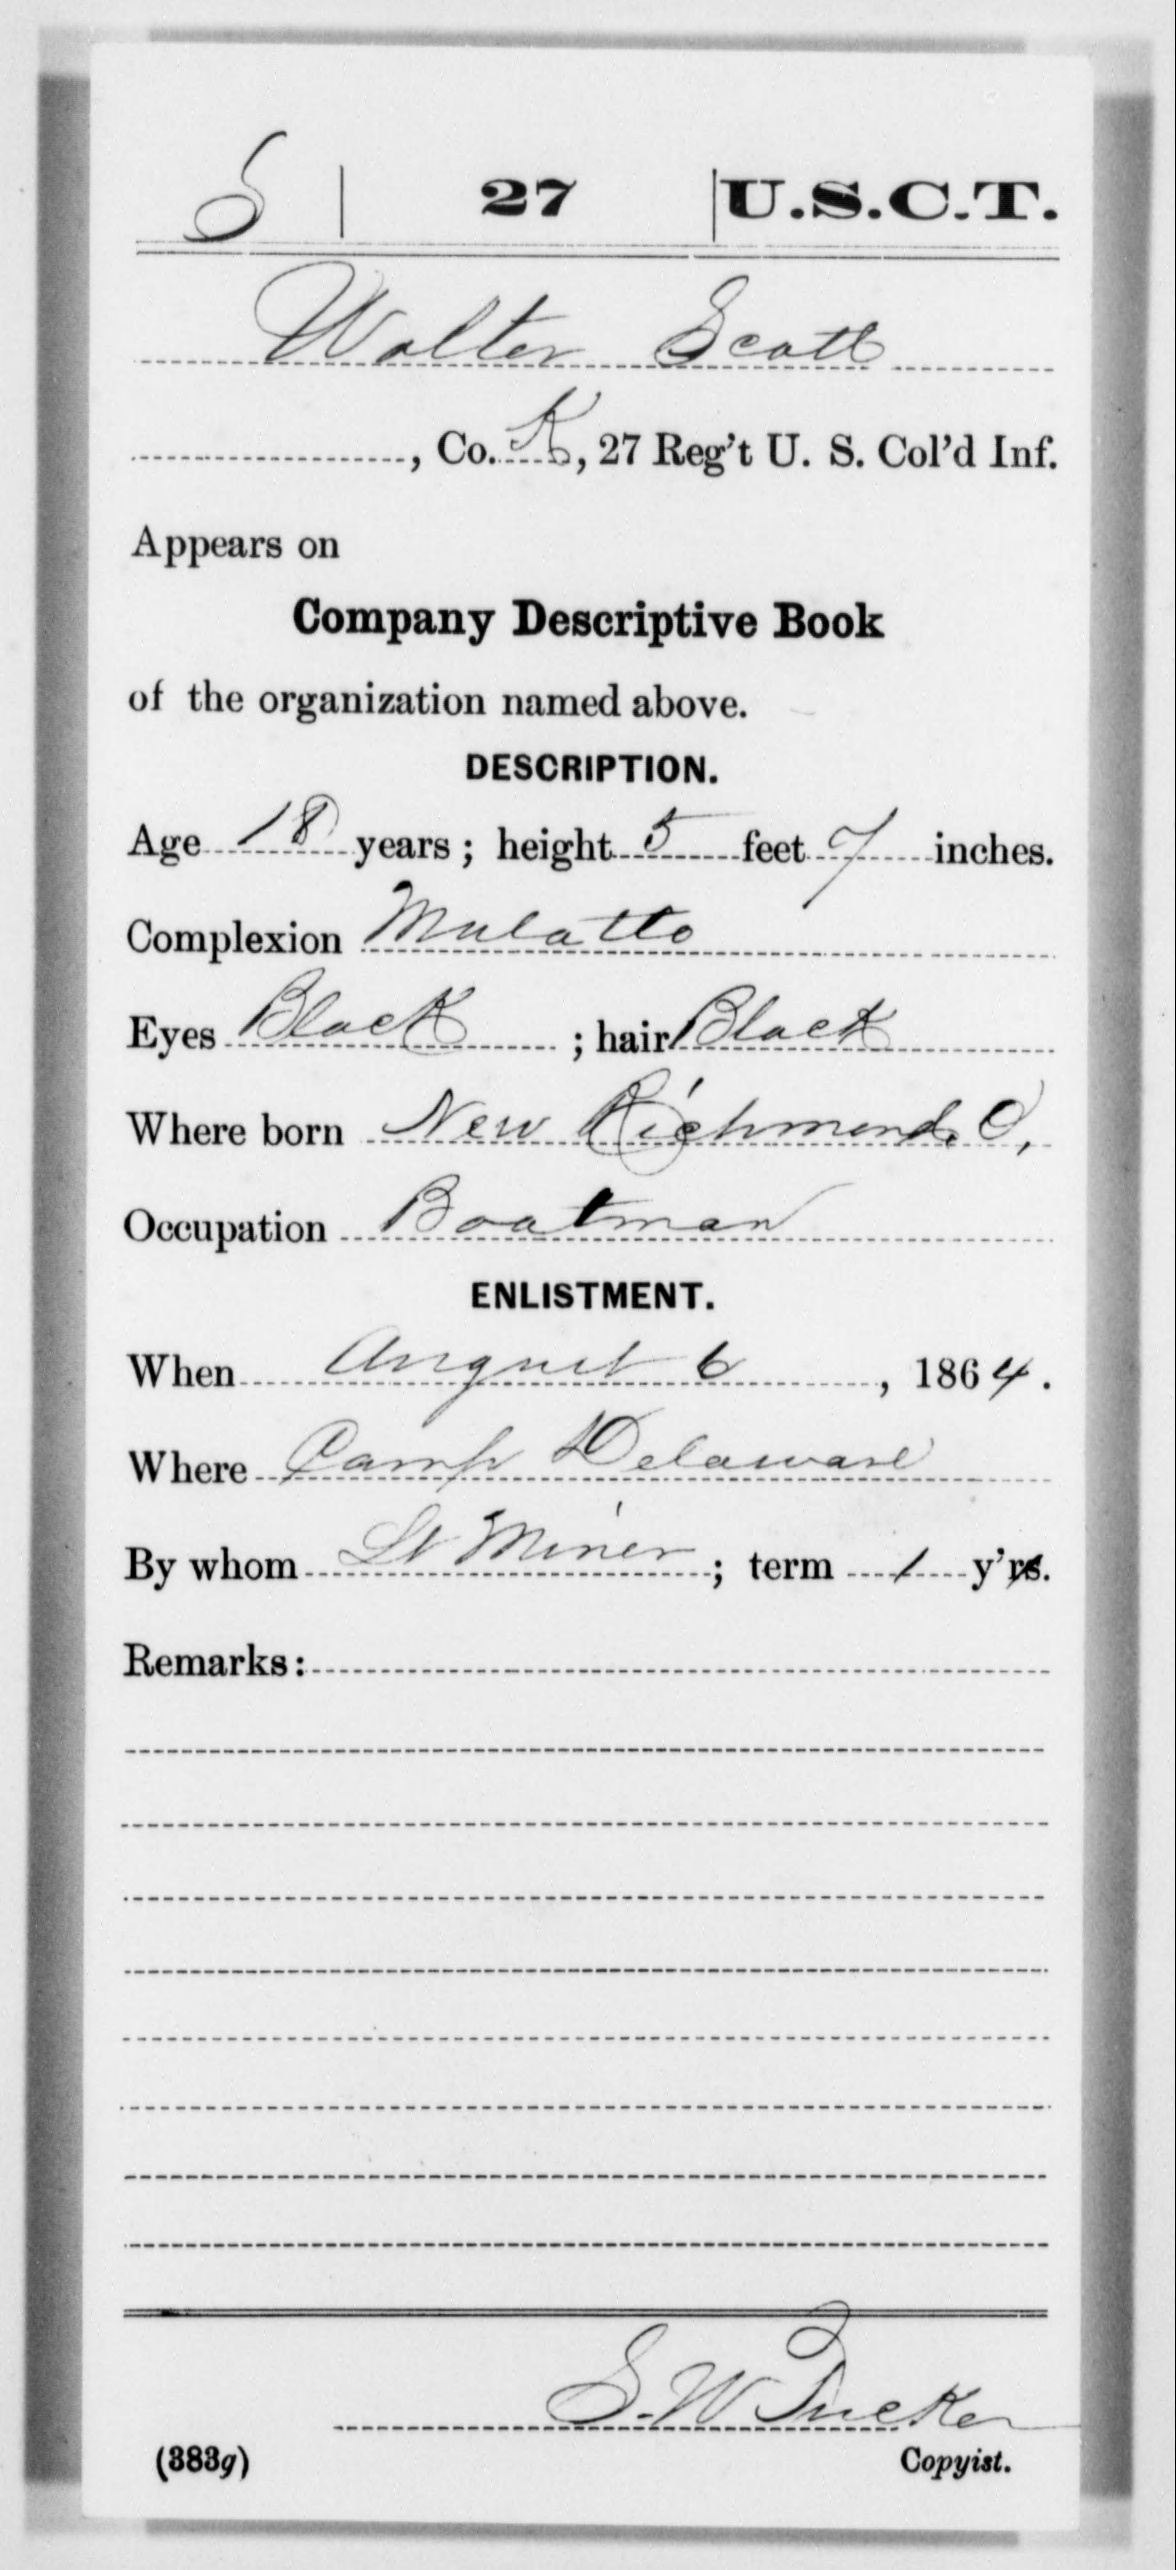 S | 27 | U.S.C.T.
Walter Scott
, Co. K, 27 Reg't U. S. Col'd Inf.
Appears on
Company Descriptive Book
of the organization named above.
DESCRIPTION.
Age 18 years; height 5 feet 7 inches.
Complexion Mulatto
Eyes Black ; hair Black
Where born New Richmond, O,
Occupation Boatman
ENLISTMENT.
When August 6, 1864.
Where Camp Delaware
By whom Lt Miner; term 1 y'rs.
Remarks:
S. W. Tucker
(383g) Copyist.